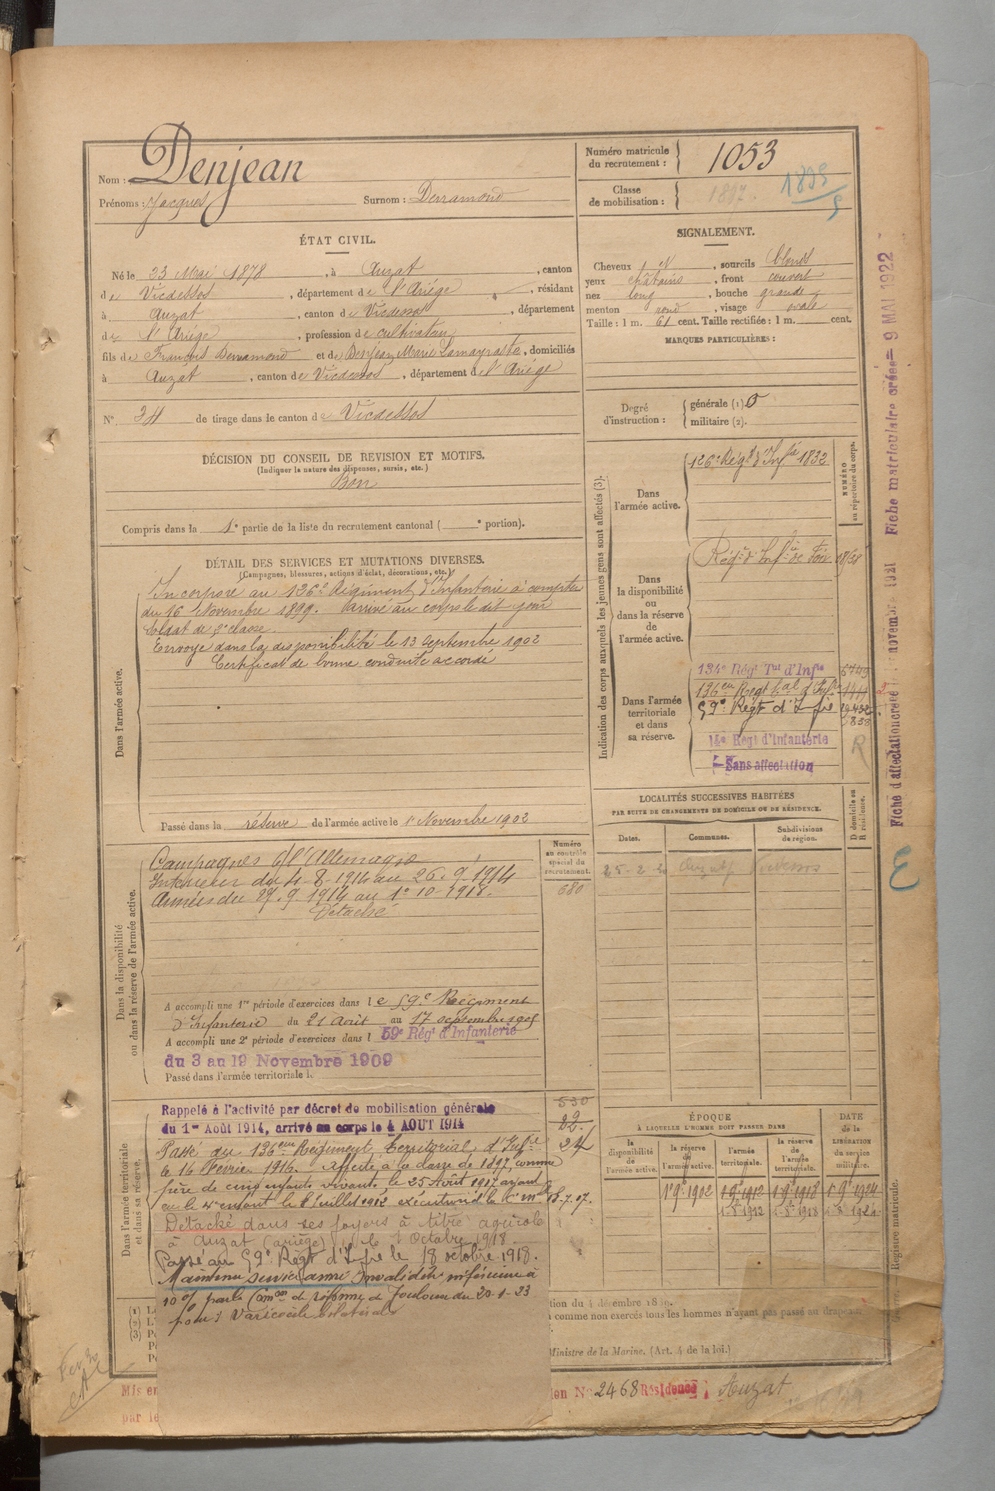 Nom : Denjean
Prénoms : Jacques Surnom : Derramond
Numéro matricule du recrutement : 1053
Classe de mobilisation : 1897
ÉTAT CIVIL.
Né le 23 Mai 1878, à Auzat, canton
de Vicdessos, département de l'Ariège, résidant
à Auzat, canton de Vicdessos, département
de l'Ariège, profession de cultivateur
fils de François Derramond et de Denjean Marie Lamayraste, domiciliés
à Auzat, canton de Vicdessos, département de l'Ariège
N° 34 de tirage dans le canton de Vicdessos
DÉCISION DU CONSEIL DE REVISION ET MOTIFS.
(Indiquer la nature des dispenses, sursis, etc.)
Bon
Compris dans la 1e partie de la liste du recrutement cantonal ( e portion).
DÉTAIL DES SERVICES ET MUTATIONS DIVERSES.
(Campagnes, blessures, actions d'éclat, décorations, etc.)
Dans l'armée active.
Incorporé au 126e Régiment d'Infanterie à compter
du 16 Novembre 1899. Arrivé au corps le dit jour
Soldat de 2e classe
Envoyé dans la disponibilité le 13 Septembre 1902
Certificat de bonne conduite accordé
Passé dans la réserve de l'armée active le 1 Novembre 1902
Dans la disponibilité
ou dans la réserve de l'armée active.
Numéro
au contrôle
spécial du
recrutement.
680
Campagnes c/ l'Allemagne
Intérieur du 4-8-1914 au 26-9-1914
Armées du 27.9.1914 au 1er 10-1918.
Détaché
A accompli une 1re période d'exercices dans le 59e Régiment
d'Infanterie du 21 Août au 17 septembre 1905
A accompli une 2e période d'exercices dans l 59e Régt d'Infanterie
du 3 au 19 Novembre 1909
Passé dans l'armée territoriale l
Dans l'armée territoriale
et dans sa réserve.
Rappelé à l'activité par décret de mobilisation générale
du 1er Août 1914, arrivé au corps le 4 AOUT 1914
530
22
24
Passé au 136eme Régiment Territorial d'Infie
le 16 Février 1916. Affecté à la classe de 1897 comme
père de cinq enfants vivants le 25 Août 1917 ayant
Détaché dans ses foyers à titre agricole
à Auzat (ariège) Octobre 1918.
Passé au 59e Régt d'Infie le 18 octobre 1918.
Maintenu service armé Invalidité inférieure à
10 % par la Comon de réforme de Toulouse du 20-1-23
pour : Varicocèle bilatérale
SIGNALEMENT.
Cheveux et, sourcils blonds
yeux châtains, front couvert
nez long, bouche grande
menton rond, visage ovale
Taille : 1 m. 61 cent. Taille rectifiée : 1 m. cent.
MARQUES PARTICULIÈRES :
Degré d'instruction : générale (1) 0
militaire (2).
Indication des corps auxquels les jeunes gens sont affectés (3).
NUMÉRO
au répertoire du corps.
Dans
l'armée active.
126e Régt d'Infie 1832
Dans
la disponibilité
ou
dans la réserve
de
l'armée active.
Régt d'Infie de Foix
Dans l'armée
territoriale
et dans
sa réserve.
134e Régt Tal d'Infie
136eme Régt tal d'Infie
59e Régt d'Infie
14e Régt d'Infanterie
Sans affectation
R
LOCALITÉS SUCCESSIVES HABITÉES
PAR SUITE DE CHANGEMENTS DE DOMICILE OU DE RÉSIDENCE.
Dates. Communes. Subdivisions de région. D domicile ou R résidence.
Auzat
ÉPOQUE
À LAQUELLE L'HOMME DOIT PASSER DANS
la disponibilité de l'armée active. la réserve de l'armée active. l'armée territoriale. la réserve de l'armée territoriale.
DATE de la LIBÉRATION du service militaire.
1.9.1902 1.9.1912 1.9.1918 1.9.1924
Registre matricule.
Fiche matriculaire créée 9 MAI 1922
comme non exercés tous les hommes n'ayant pas passé au drapeau
Ministre de la Marine. (Art. 4 de la loi.)
Mis en
par le
N° 2468 Résidence : Auzat